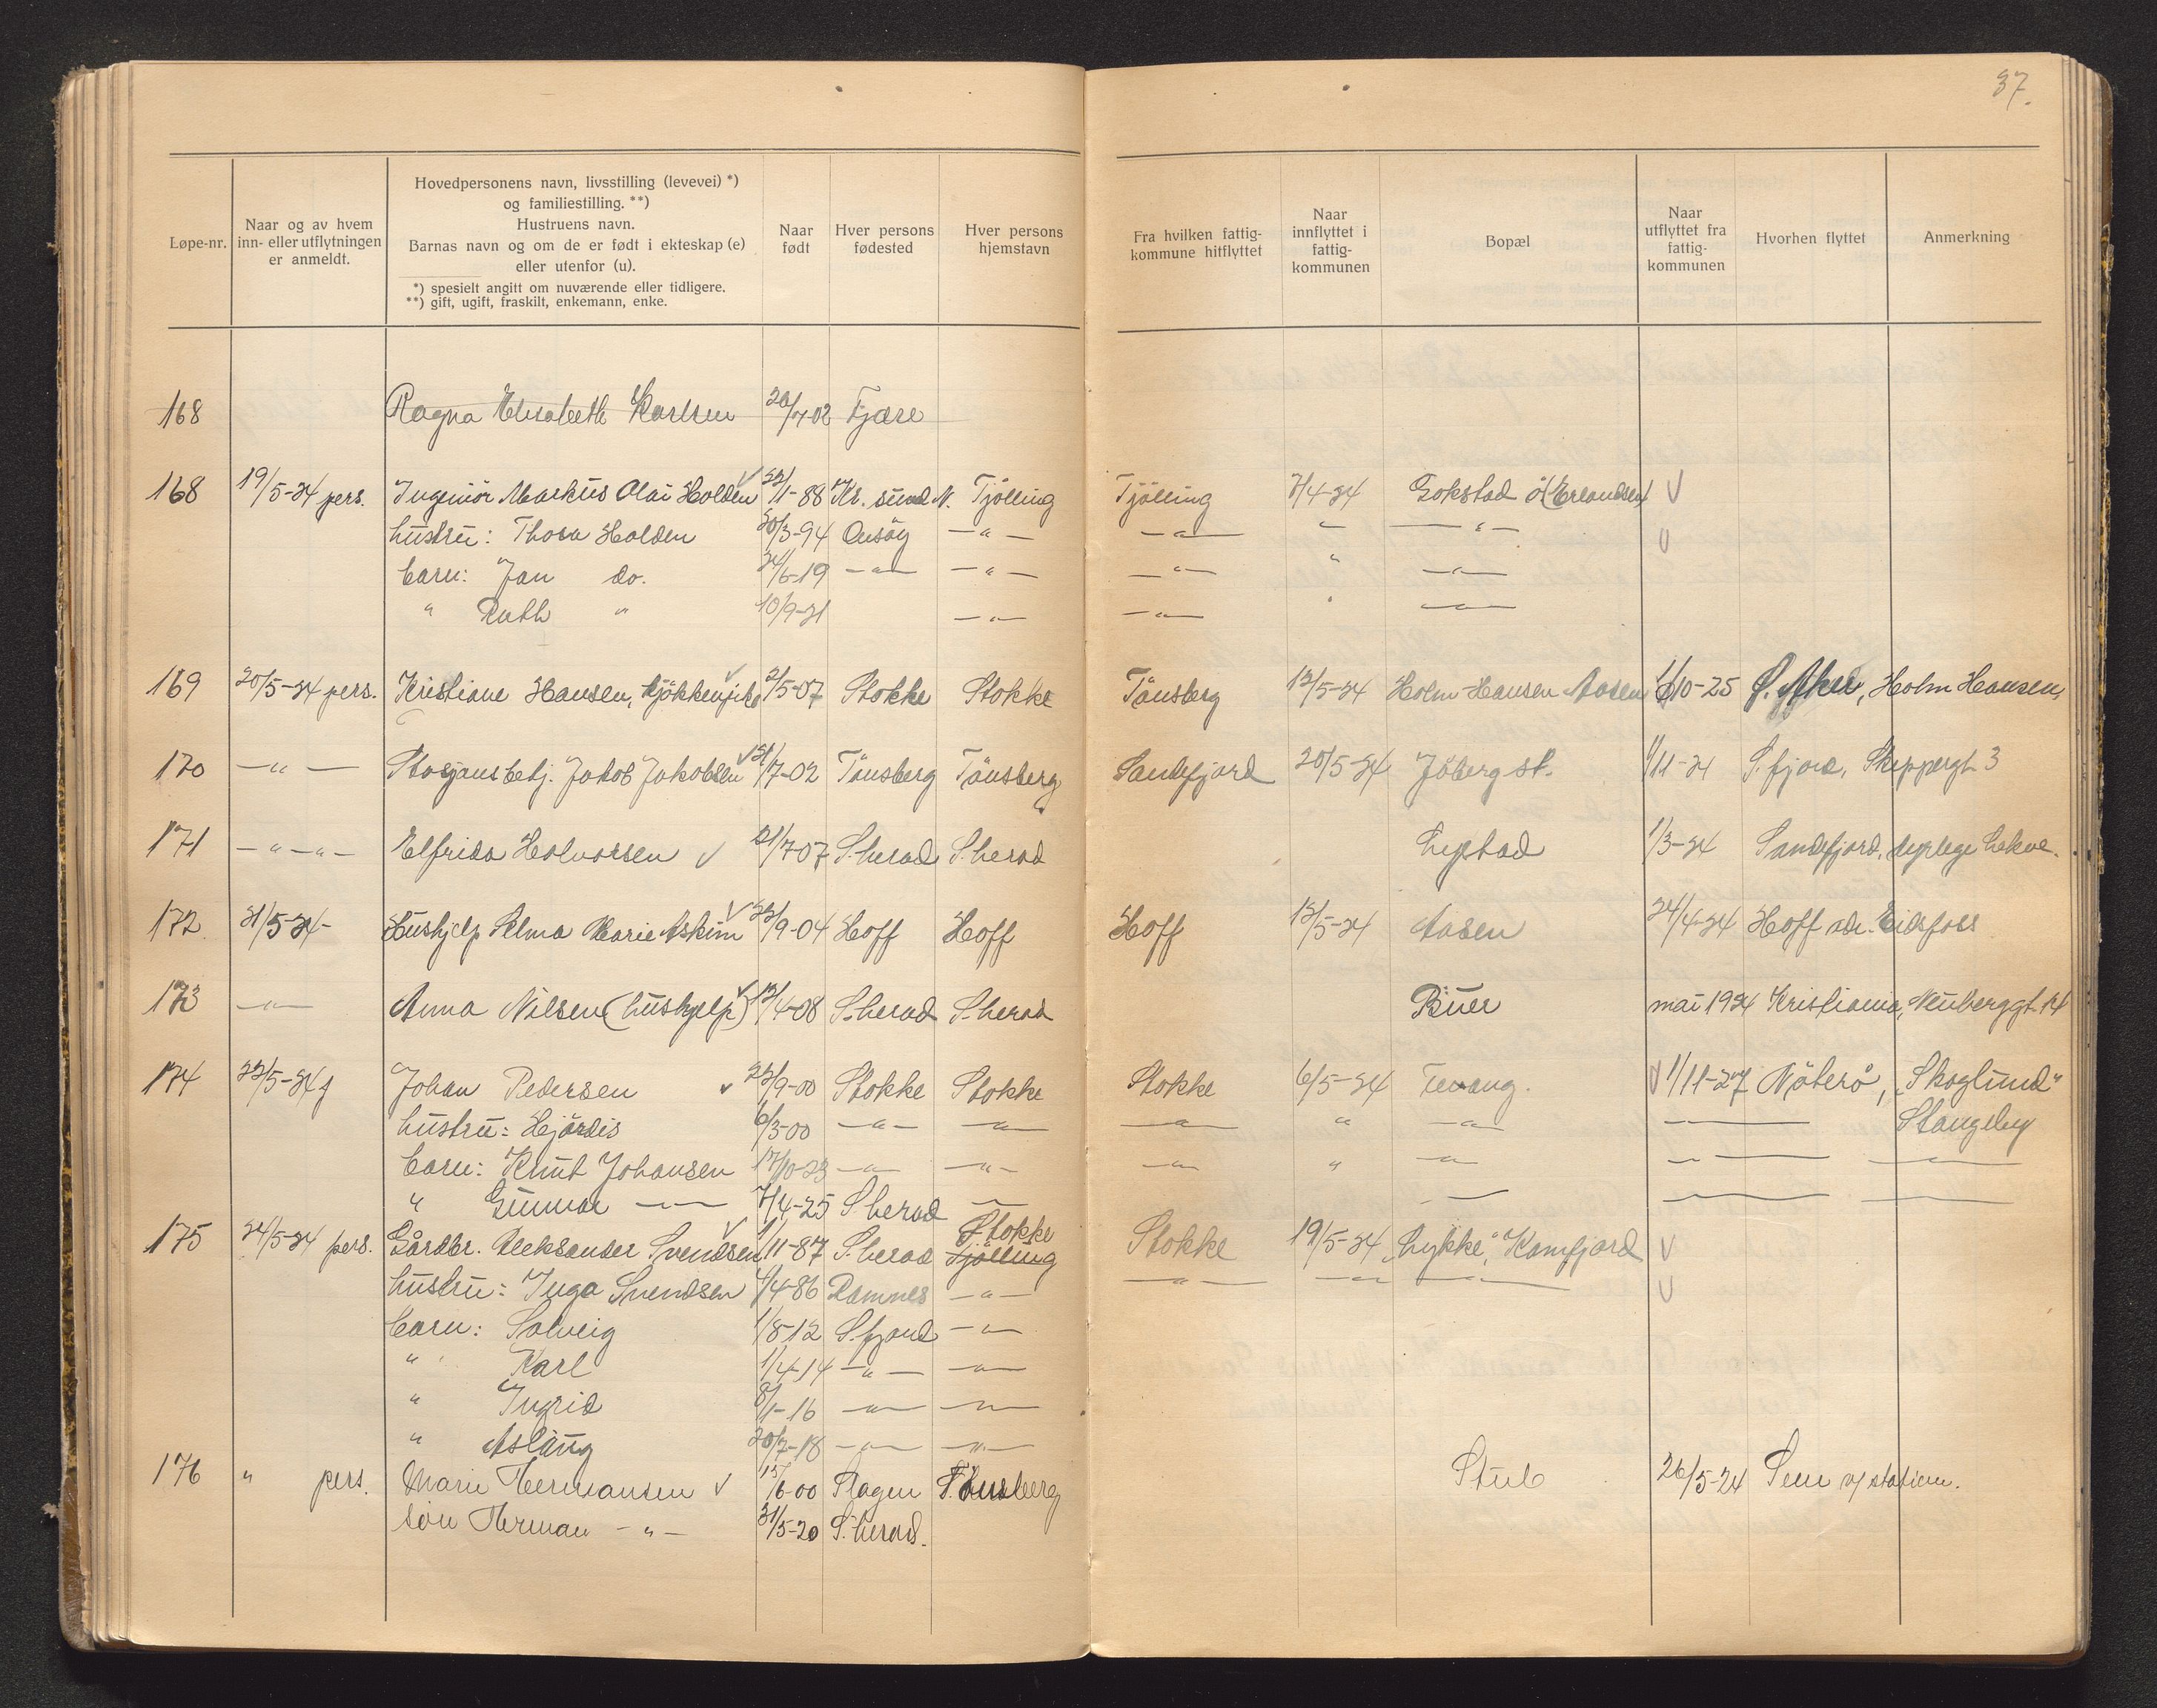 37.
Løpe-nr.
Naar og av hvem
inn- eller utflytningen
er anmeldt.
Hovedpersonens navn, livsstilling (levevei) *)
og familiestilling. **)
Hustruens navn.
Barnas navn og om de er født i ekteskap (e)
eller utenfor (u).
*) spesielt angitt om nuværende eller tidligere.
**) gift, ugift, fraskilt, enkemann, enke.
Naar
født
Hver persons
fødested
Hver persons
hjemstavn
Fra hvilken fattig-
kommune hitflyttet
Naar
innflyttet i
fattig-
kommunen
Bopæl
Naar
utflyttet fra
fattig-
kommunen
Hvorhen flyttet
Anmerkning
168 Ragna Elisabeth Karlsen 20/7-02 Fjære
168 19/5-24 pers. Ingeniör Markus Olai Holden 22/1-88 Kr. sund N. Tjölling Tjölling 7/4-24 Gokstad ö (Erlandsen)
hustru: Thora Holden 30/3-94 Onsöy -"- -"- " -"-
barn: Jan do. 24/6-19 -"- -"- -"- " -"-
" Ruth " 10/9-21 -"- -"- " -"-
169 20/5-24 pers. Kristiane Hansen, kjökkenpike 2/5-07 Stokke Stokke Tönsberg 12/5-24 Holm-Hansen Aasen 1/10-25 Ø. Aker, Holm Hansen,
170 -"- Stasjonsbetj. Jakob Jakobsen 21/7-02 Tönsberg Tönsberg Sandefjord 20/5-24 Jåberg st. 1/11-24 S.fjord, Skippergt. 3
171 -"-"- Elfrida Halvorsen 21/7-07 S.herad S.herad Lystad 1/3-24 Sandefjord, dyrlege
172 21/5-24- Hushjelp Alma Marie Askim 22/9-04 Hoff Hoff Hoff 12/5-24 Aasen 24/4-24 Hoff adr. Eidsfoss
173 -"- Anna Nilsen (hushjelp) 12/4-08 S.herad S.herad Buer mai 1924 Kristiania, Neuberggt. 14
174 22/5-24 Johan Pedersen 22/9-00 Stokke Stokke Stokke 6/5-24 1/11-27 Nöterö, "Skoglund"
hustru: Hjördis 6/3-00 -"- -"- -"- " -"- — Stangeby
barn: Knut Johansen 17/10-23 -"- -"- -"- " -"- — —
" Gunnar — 7/4-25 S.herad — — — —
175 24/5-24 pers. Gårdbr. Aleksander Svendsen 1/11-87 S.herad Stokke Tjölling Stokke 19/5-24 "Lykke", Kamfjord
hustru: Inga Svendsen 4/4-86 Ramnes -"- -"- -"- -"-
barn: Solveig 1/8-12 S.fjord -"-
" Karl 1/4-14 -"- -"-
" Ingrid 8/1-16 -"- -"-
" Aslaug 20/7-18 -"- -"-
176 " pers. Marie Hermansen 15/6-00 Slagen Tönsberg Stub 26/5-24 Sem v/ stasjon.
sön Herman -"- 31/5-20 S.herad.